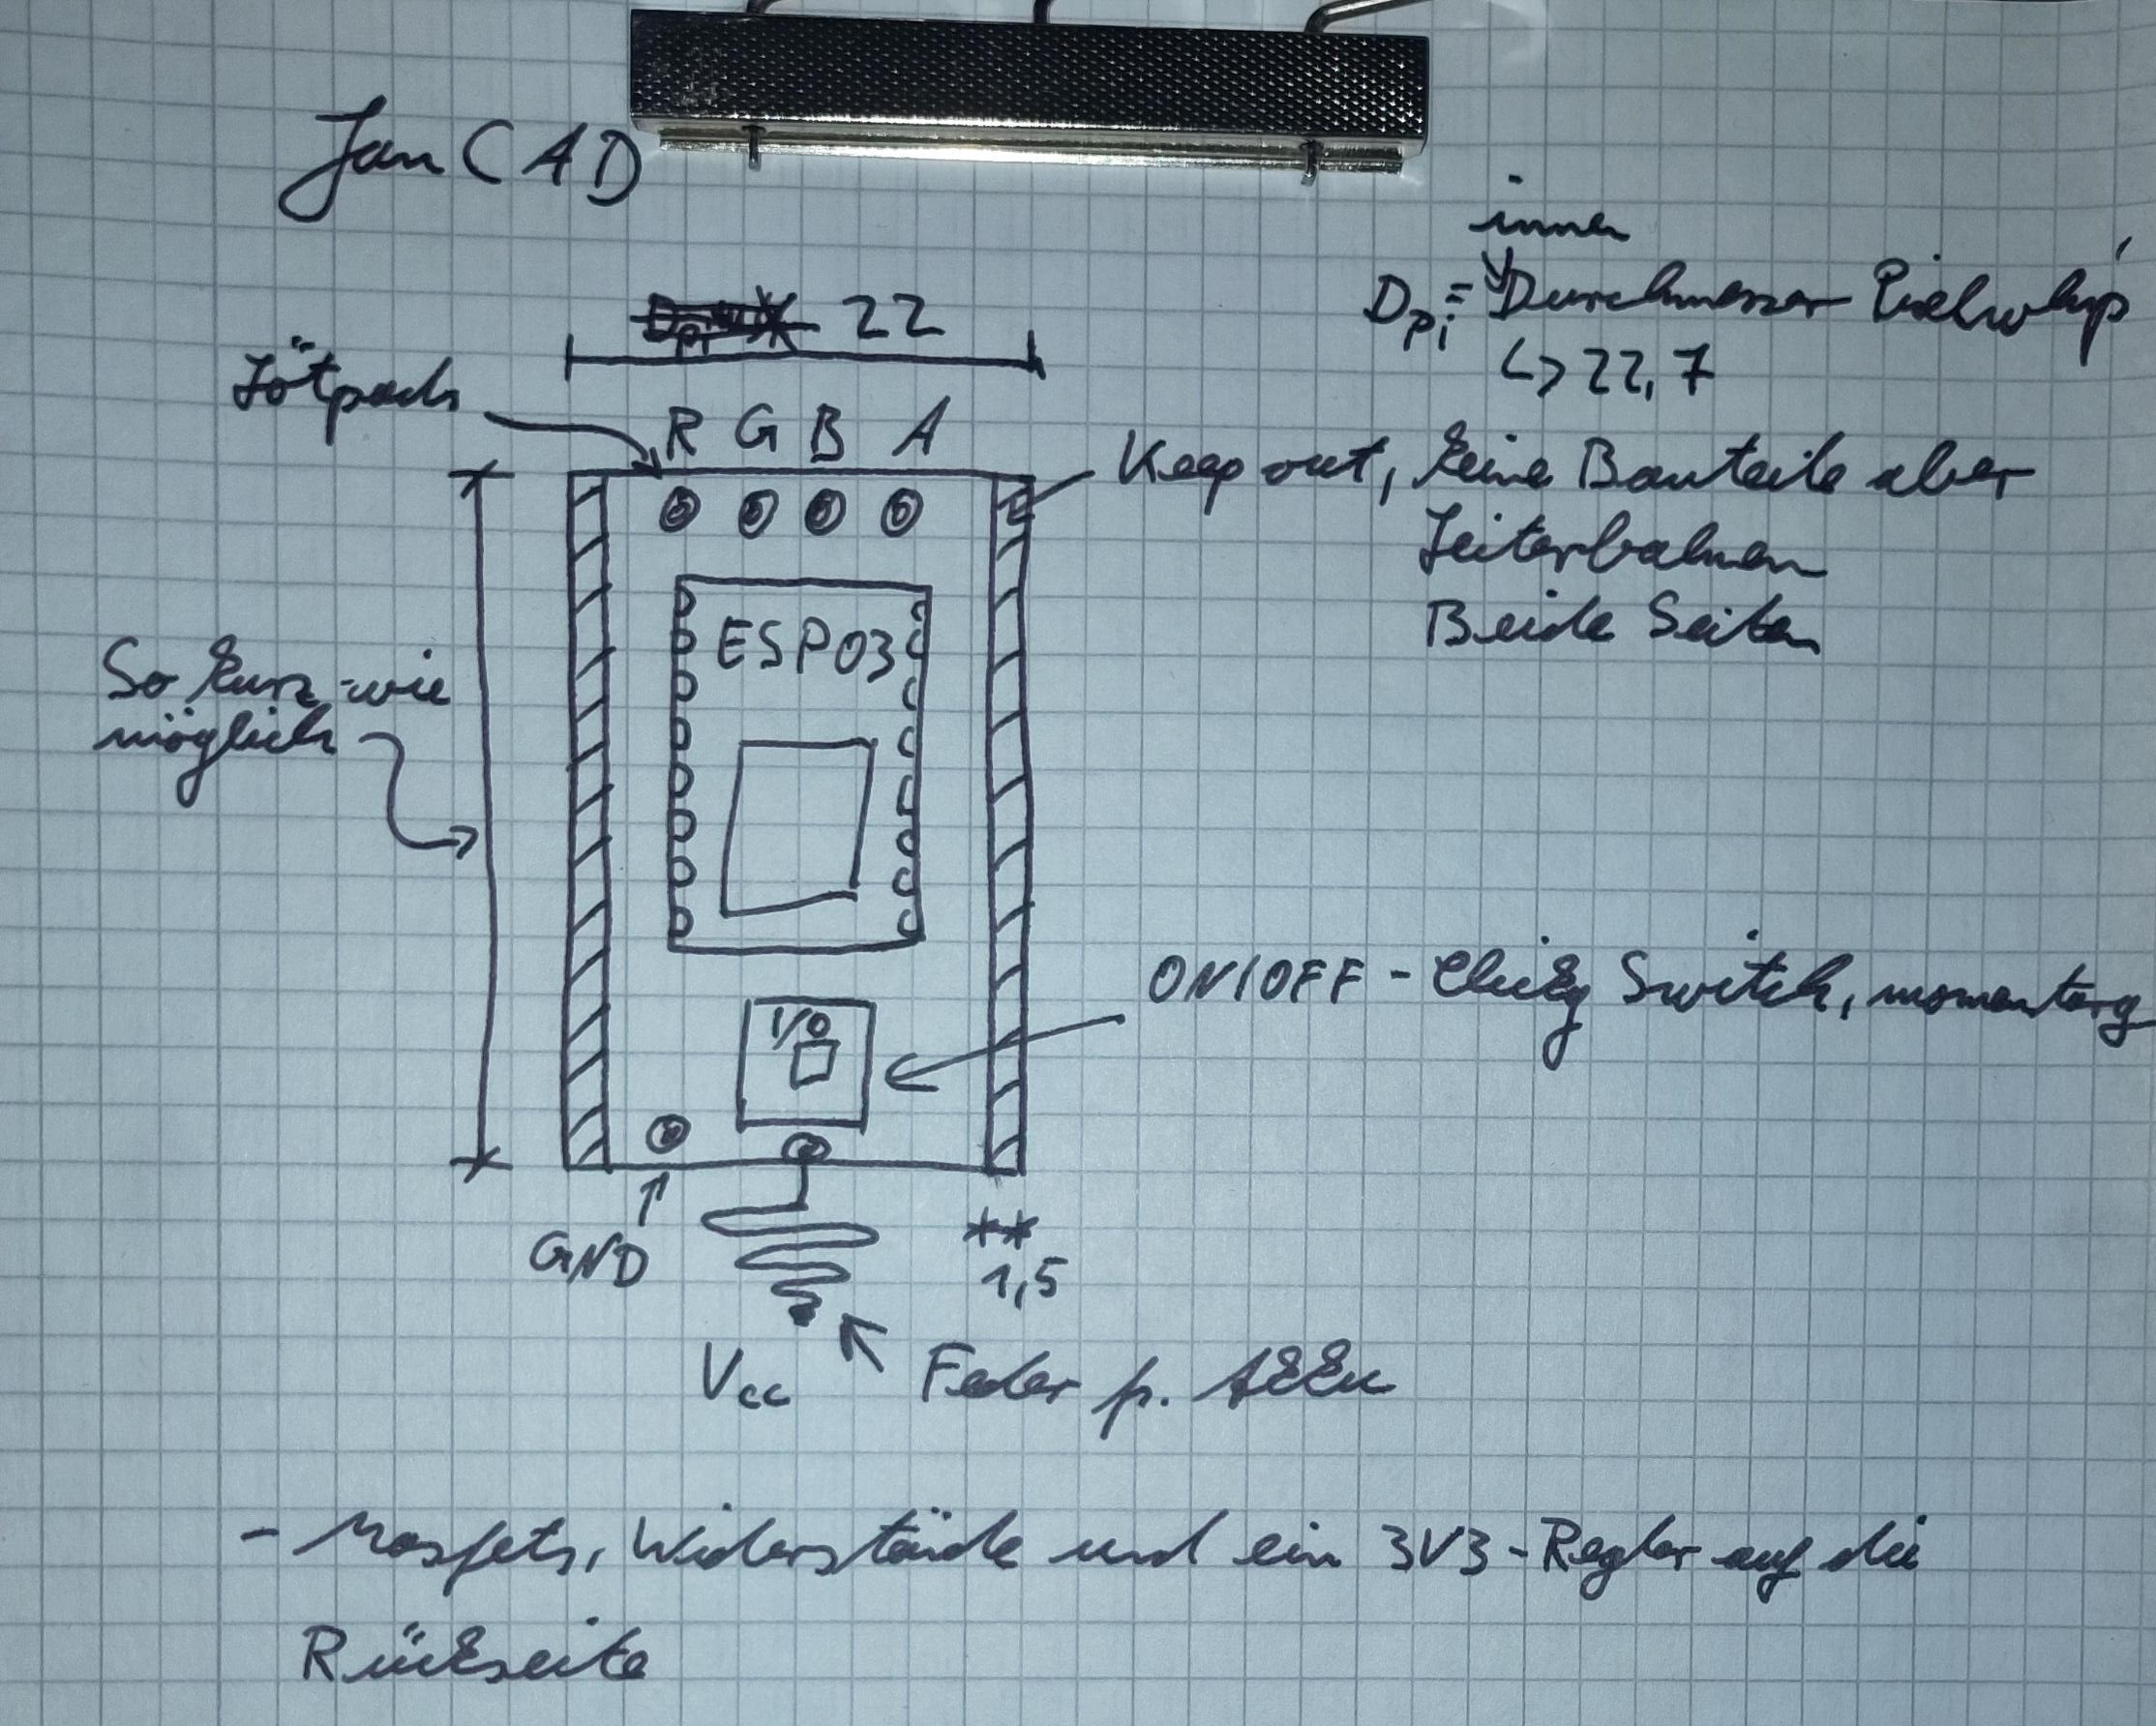 Jan CAD
innen
Dpi = Durchmesser Pixelwhip
↳ 22,7
22
Lötpads
R G B A
Keep out, keine Bauteile aber
Leiterbahnen
Beide Seiten
ESP03
So kurz wie
möglich
ON/OFF - Clicky Switch, momentary
I/O
GND
**
1,5
Vcc
Feder f. Akku
- Mosfets, Widerstände und ein 3V3-Regler auf die
Rückseite